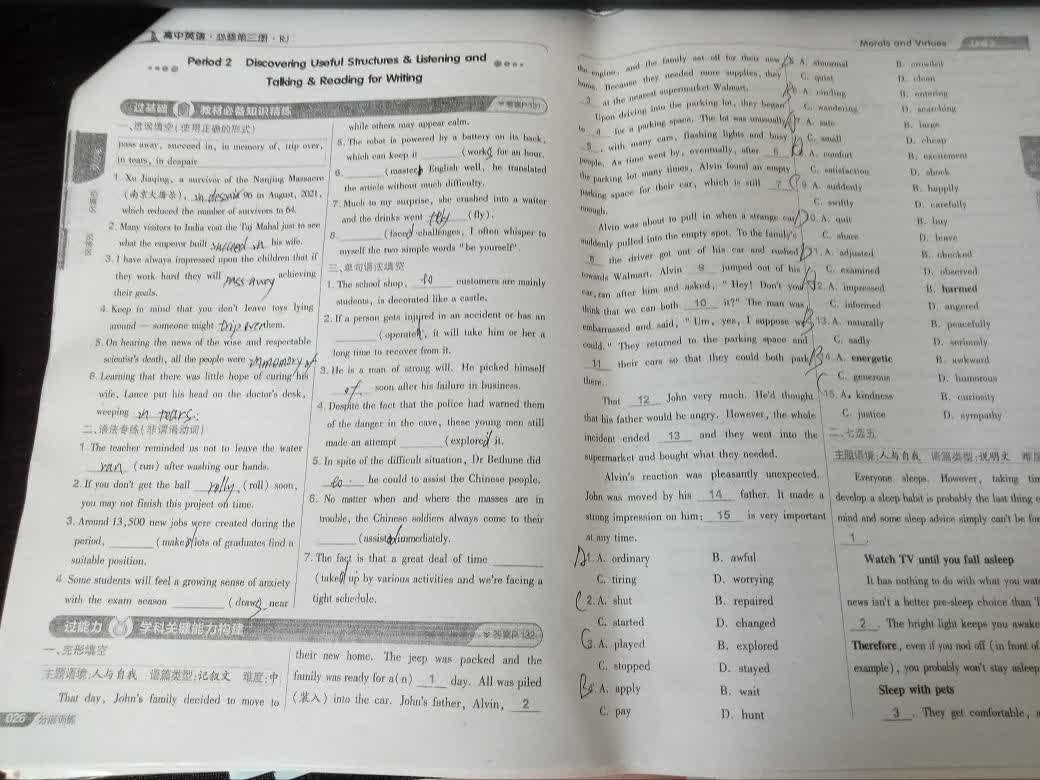 高中英语·必修第三册·RJ
Period 2 Discovering Useful Structures & Listening and
Talking & Reading for Writing
过基础 教材必备知识精练
答案P.131
一、选词填空(使用正确的形式)
pass away, succeed in, in memory of, trip over,
in tears, in despair
1. Xu Jiaqing, a survivor of the Nanjing Massacre
(南京大屠杀), 96 in August, 2021,
which reduced the number of survivors to 64.
2. Many visitors to India visit the Taj Mahal just to see
what the emperor built succeed in his wife.
3. I have always impressed upon the children that if
they work hard they will pass away achieving
their goals.
4. Keep in mind that you don't leave toys lying
around — someone might trip over them.
5. On hearing the news of the wise and respectable
scientist's death, all the people were in memory of
6. Learning that there was little hope of curing his
wife, Lance put his head on the doctor's desk,
weeping in tears.
二、语法专练(非谓语动词)
1. The teacher reminded us not to leave the water
ran (run) after washing our hands.
2. If you don't get the ball rolly (roll) soon,
you may not finish this project on time.
3. Around 13,500 new jobs were created during the
period, (make) lots of graduates find a
suitable position.
4. Some students will feel a growing sense of anxiety
with the exam season (draw) near
while others may appear calm.
5. The robot is powered by a battery on its back,
which can keep it (work) for an hour.
6. (master) English well, he translated
the article without much difficulty.
7. Much to my surprise, she crashed into a waiter
and the drinks went fly (fly).
8. (face) challenges, I often whisper to
myself the two simple words "be yourself".
三、单句语法填空
1. The school shop, to customers are mainly
students, is decorated like a castle.
2. If a person gets injured in an accident or has an
(operate), it will take him or her a
long time to recover from it.
3. He is a man of strong will. He picked himself
of soon after his failure in business.
4. Despite the fact that the police had warned them
of the danger in the cave, these young men still
made an attempt (explore) it.
5. In spite of the difficult situation, Dr Bethune did
to he could to assist the Chinese people.
6. No matter when and where the masses are in
trouble, the Chinese soldiers always come to their
(assist) immediately.
7. The fact is that a great deal of time
(take) up by various activities and we're facing a
tight schedule.
过能力 学科关键能力构建
答案P.132
一、完形填空
主题语境:人与自我 语篇类型:记叙文 难度:中
That day, John's family decided to move to
their new home. The jeep was packed and the
family was ready for a(n) 1 day. All was piled
(装入) into the car. John's father, Alvin, 2
026 分层训练
Morals and Virtues
the engine, and the family set off for their new
home. Because they needed more supplies, they
3 at the nearest supermarket Walmart.
Upon driving into the parking lot, they began
to 4 for a parking space. The lot was unusually
5 , with many cars, flashing lights and busy
people. As time went by, eventually, after 6
the parking lot many times, Alvin found an empty
parking space for their car, which is still 7
enough.
Alvin was about to pull in when a strange car
suddenly pulled into the empty spot. To the family's
8 the driver got out of his car and rushed
towards Walmart. Alvin 9 jumped out of his
car, ran after him and asked, "Hey! Don't you
think that we can both 10 it?" The man was
embarrassed and said, "Um, yes, I suppose we
could." They returned to the parking space and
11 their cars so that they could both park
there.
That 12 John very much. He'd thought
that his father would be angry. However, the whole
incident ended 13 and they went into the
supermarket and bought what they needed.
Alvin's reaction was pleasantly unexpected.
John was moved by his 14 father. It made a
strong impression on him; 15 is very important
at any time.
1. A. ordinary B. awful
C. tiring D. worrying
2. A. shut B. repaired
C. started D. changed
3. A. played B. explored
C. stopped D. stayed
4. A. apply B. wait
C. pay D. hunt
5 A. abnormal B. crowded
C. quiet D. clean
6 A. circling B. entering
C. wandering D. searching
7 A. safe B. large
C. small D. cheap
A. comfort B. excitement
C. satisfaction D. shock
9 A. suddenly B. happily
C. swiftly D. carefully
0. A. quit B. buy
C. share D. leave
1. A. adjusted B. checked
C. examined D. observed
2. A. impressed B. harmed
C. informed D. angered
13. A. naturally B. peacefully
C. sadly D. seriously
4. A. energetic B. awkward
C. generous D. humorous
15. A. kindness B. curiosity
C. justice D. sympathy
二、七选五
主题语境:人与自我 语篇类型:说明文 难度
Everyone sleeps. However, taking tim
develop a sleep habit is probably the last thing o
mind and some sleep advice simply can't be for
1 .
Watch TV until you fall asleep
It has nothing to do with what you wat
news isn't a better pre-sleep choice than T
2 . The bright light keeps you awake
Therefore, even if you nod off (in front of
example), you probably won't stay asleep
Sleep with pets
3 . They get comfortable,